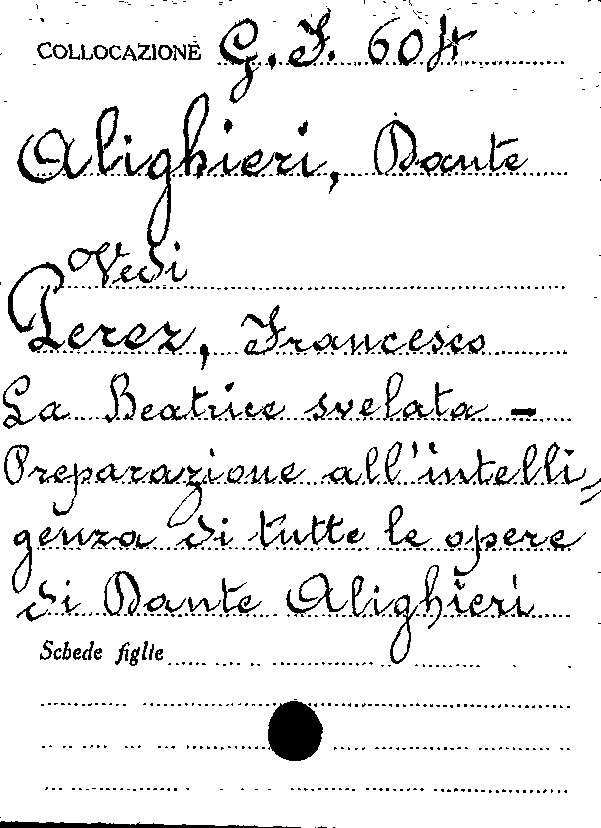 COLLOCAZIONE G. F. 604
Alighieri, Dante
Vedi
Perez, Francesco
La Beatrice svelata -
Preparazione all'intelli=
genza di tutte le opere
di Dante Alighieri
Schede figlie